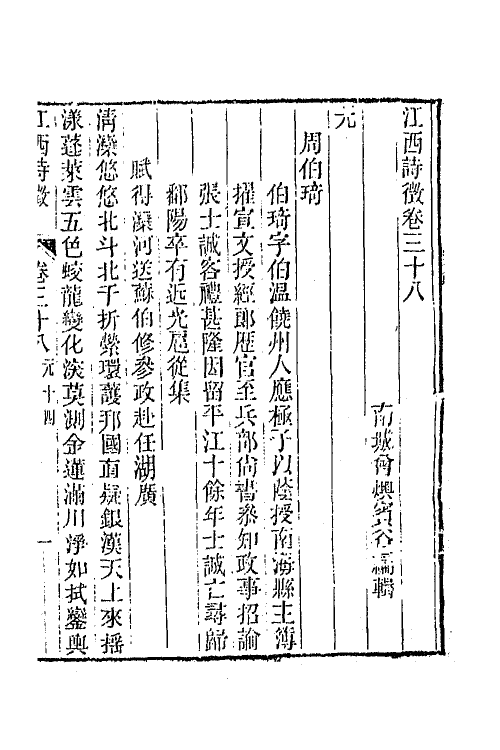 江西詩徵卷三十八
南城曾燠賓谷編輯
元
周伯琦
伯琦字伯溫饒州人應極子以蔭授南海縣主簿
擢宣文授經郎歷官至兵部尚書參知政事招諭
張士誠客禮甚隆因留平江十餘年士誠亡尋歸
鄱陽卒有近光扈從集
賦得灤河送蘇伯修參政赴任湖廣
清灤悠悠北斗北千折縈環護邦國直疑銀漢天上來搖
漾蓬萊雲五色蛟龍變化深莫測金蓮滿川淨如拭鑾輿
江西詩徵 卷三十八 元十四 一